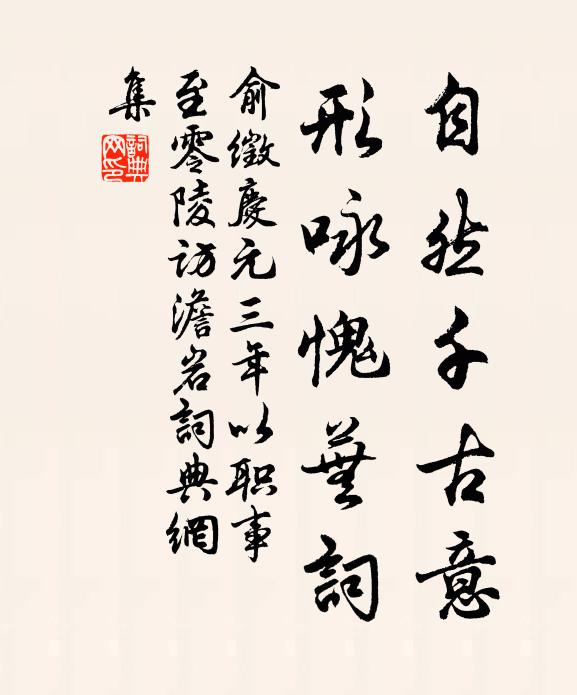 自然千古意
形咏愧蕪詞
俞徵慶元三年以职事
至零陵访澹岩詞典網
集
詞典网印